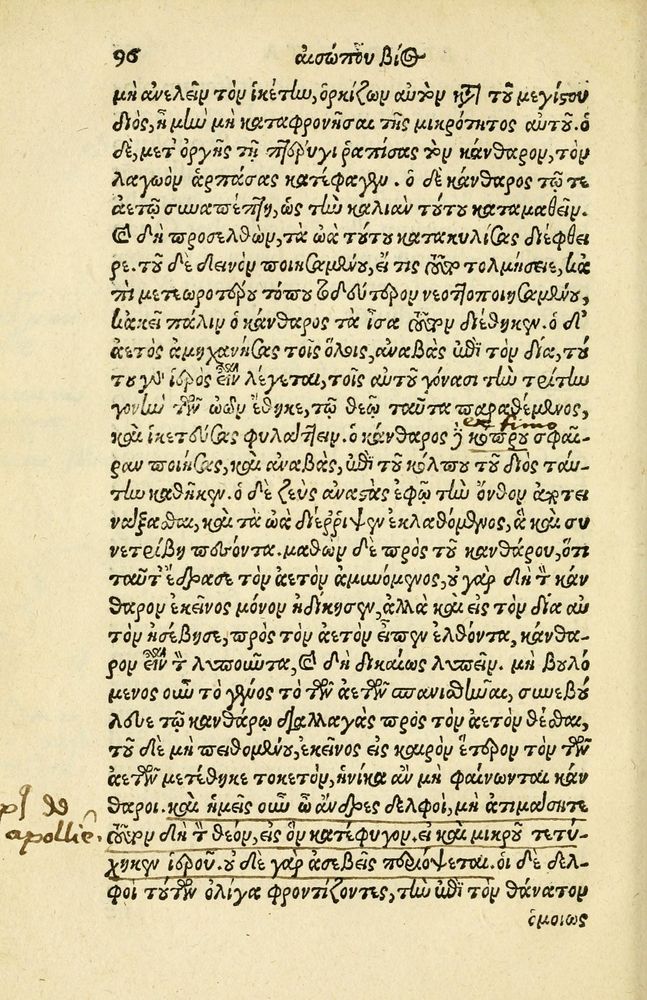 96 αισώπου βί⊙
μὴ ἀνελεῖν τὸν ἱκέτην, ὁρκίζων αὐτὸν κατὰ τοῦ μεγίστου
διὸς, ἦ μὴν μὴ καταφρονῆσαι τῆς μικρότητος αὐτοῦ. ὁ
δὲ, μετ' ὀργῆς τῇ πτέρυγι ῥαπίσας τὸν κάνθαρον, τὸν
λαγωὸν ἁρπάσας κατέφαγεν. ὁ δὲ κάνθαρος τῷ τε
ἀετῷ συναπέπτη, ὡς τὴν καλιὰν τούτου καταμαθεῖν.
καὶ δὴ προσελθὼν, τὰ ὠὰ τούτου κατακυλίσας διέφθει
ρε. τοῦ δὲ δεινὸν ποιησαμένου, εἴ τις ταῦτα τολμήσειε, κἀ
πὶ μετεωροτέρου τόπου τὸ δεύτερον νεοττοποιησαμένου,
κἀκεῖ πάλιν ὁ κάνθαρος τὰ ἴσα τοῦτον διέθηκεν. ὁ δ'
ἀετὸς ἀμηχανήσας τοῖς ὅλοις, ἀναβὰς ἐπὶ τὸν δία, τού
του γὰρ ἱερὸς εἶναι λέγεται, τοῖς αὐτοῦ γόνασι τὴν τρίτην
γονὴν τῶν ὠῶν ἔθηκε, τῷ θεῷ ταῦτα παραθέμενος,
ex fimo
καὶ ἱκετεύσας φυλάττειν. ὁ κάνθαρος δὲ κόπρου σφαῖ-
ραν ποιήσας, καὶ ἀναβὰς, ἐπὶ τοῦ κόλπου τοῦ διὸς ταύ-
την καθῆκεν. ὁ δὲ ζεὺς ἀναστὰς ἐφ' ᾧ τὴν ὄνθον ἀποτι
νάξασθαι, καὶ τὰ ὠὰ διέρριψεν ἐκλαθόμενος, ἃ καὶ συ
νετρίβη πεσόντα. μαθὼν δὲ πρὸς τοῦ κανθάρου, ὅτι
ταῦτ' ἔδρασε τὸν ἀετὸν ἀμυνόμενος, οὐ γὰρ δὴ τὸν κάν
θαρον ἐκεῖνος μόνον ἠδίκησεν, ἀλλὰ καὶ εἰς τὸν δία αὐ
τὸν ἠσέβησε, πρὸς τὸν ἀετὸν εἶπεν ἐλθόντα, κάνθα-
ρον εἶναι τὸν λυποῦντα, καὶ δὴ δικαίως λυπεῖν. μὴ βουλό
μενος οὖν τὸ γένος τὸ τῶν ἀετῶν σπανισθῆναι, συνεβού
λευε τῷ κανθάρῳ διαλλαγὰς πρὸς τὸν ἀετὸν θέσθαι,
τοῦ δὲ μὴ πειθομένου, ἐκεῖνος εἰς καιρὸν ἕτερον τὸν τῶν
ἀετῶν μετέθηκε τοκετὸν, ἡνίκα ἂν μὴ φαίνωνται κάν
θαροι. καὶ ἡμεῖς οὖν ὦ ἄνδρες δελφοὶ, μὴ ἀτιμάσητε
apolline
τοῦτον δὴ τὸν θεὸν, εἰς ὃν κατέφυγον. εἰ καὶ μικροῦ τετύ-
χηκεν ἱεροῦ. οὐδὲ γὰρ ἀσεβεῖς περιόψεται. οἱ δὲ δελ-
φοὶ τούτων ὀλίγα φροντίζοντες, τὴν ἐπὶ τὸν θάνατον
ὁμοίως